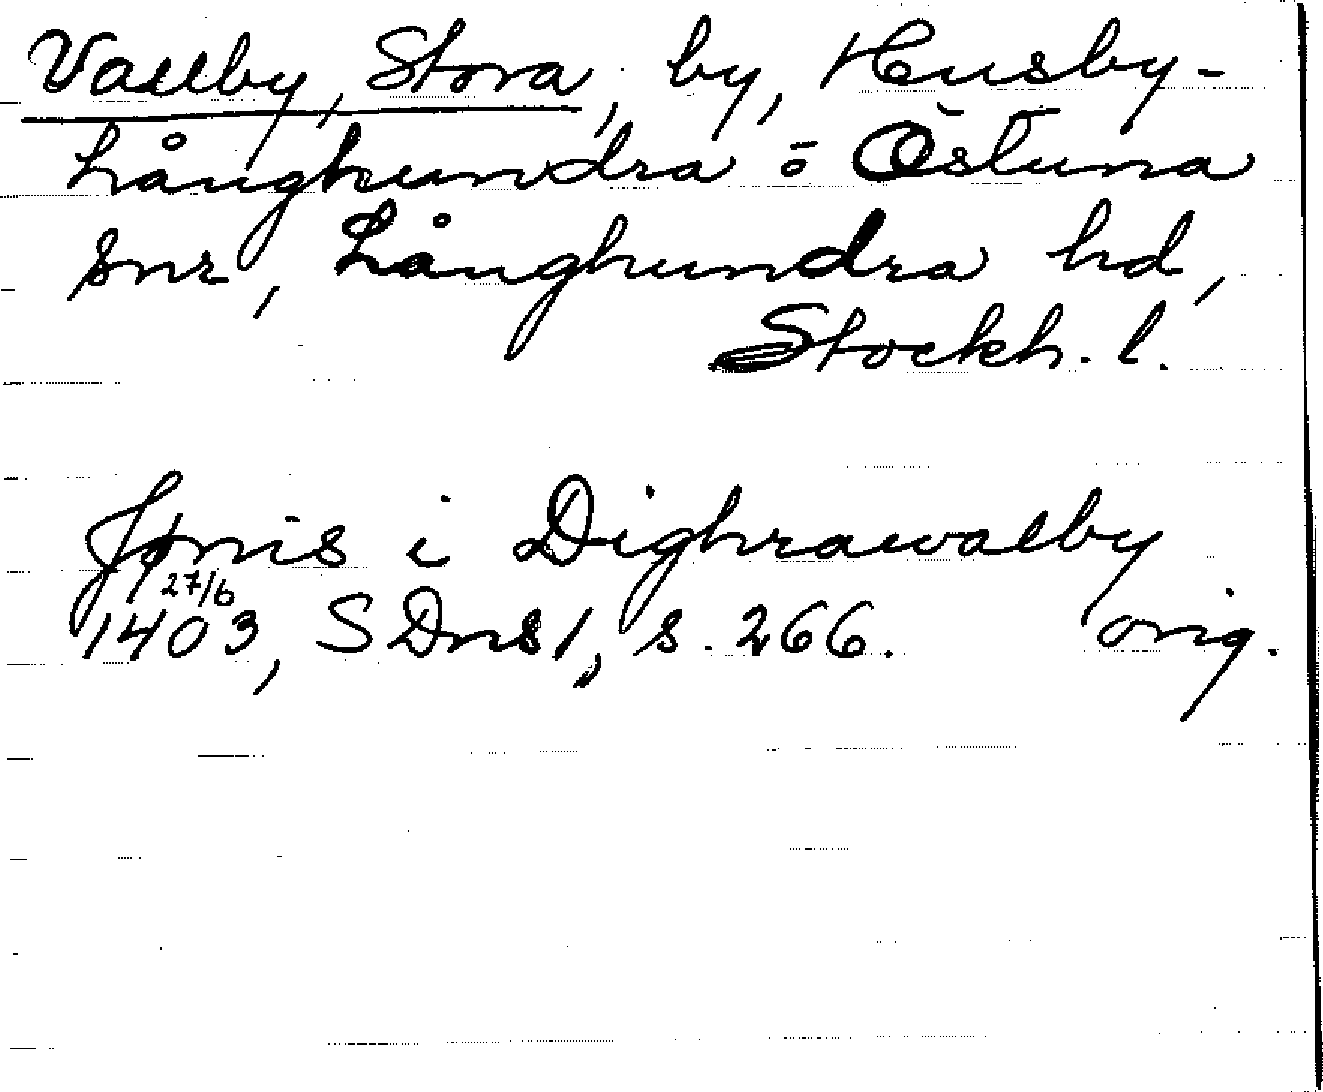 Vallby, Stora, by, Husby-
Långhundra o Östuna
snr, Långhundra hd,
Stockh. l.
Jønis i Dighrawalby
27/6
1403, SDns1, s. 266. orig.